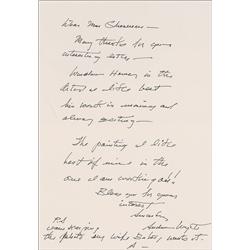 Dear Mrs
Many thanks for your
interesting letter –
Winslow Homer in the
later is like best
his work is moving and
always exciting –
The painting I like
best of mine is the
one I am working on!
Bless you for your
interest
Sincerely
Andrew Wyeth
P.S.
the
my wife Betsy wrote it.
A –